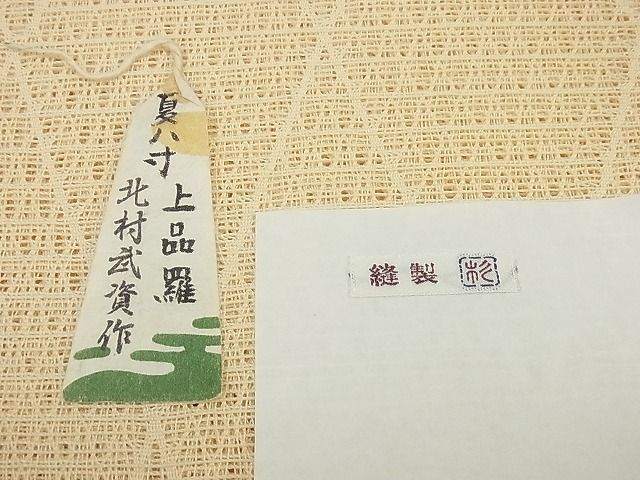 夏八寸
上品羅
北村武資作
縫製 杉